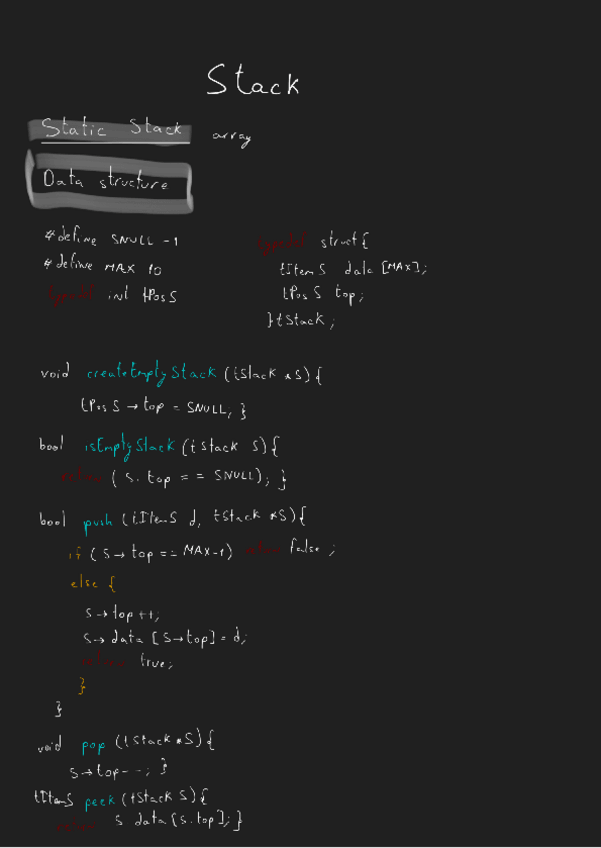 Stack
Static Stack array
Data structure
#define SNULL -1
#define MAX 10
typedef int tPosS
typedef struct{
tItemS data [MAX];
tPosS top;
}tStack;
void createEmptyStack (tStack *S){
tPosS → top = SNULL; }
bool isEmptyStack (tStack S){
return (S.top == SNULL); }
bool push (tItemS d, tStack *S){
if (S→top == MAX-1) return false;
else {
S→top++;
S→data [S→top] = d;
return true;
}
}
void pop (tStack *S){
S→top--; }
tItemS peek (tStack S){
return S data[S.top]; }